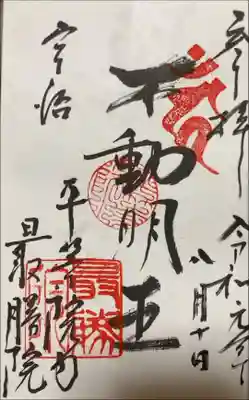 奉拝 令和元年
八月十日
不動明王
宇治
平等院内
最勝院